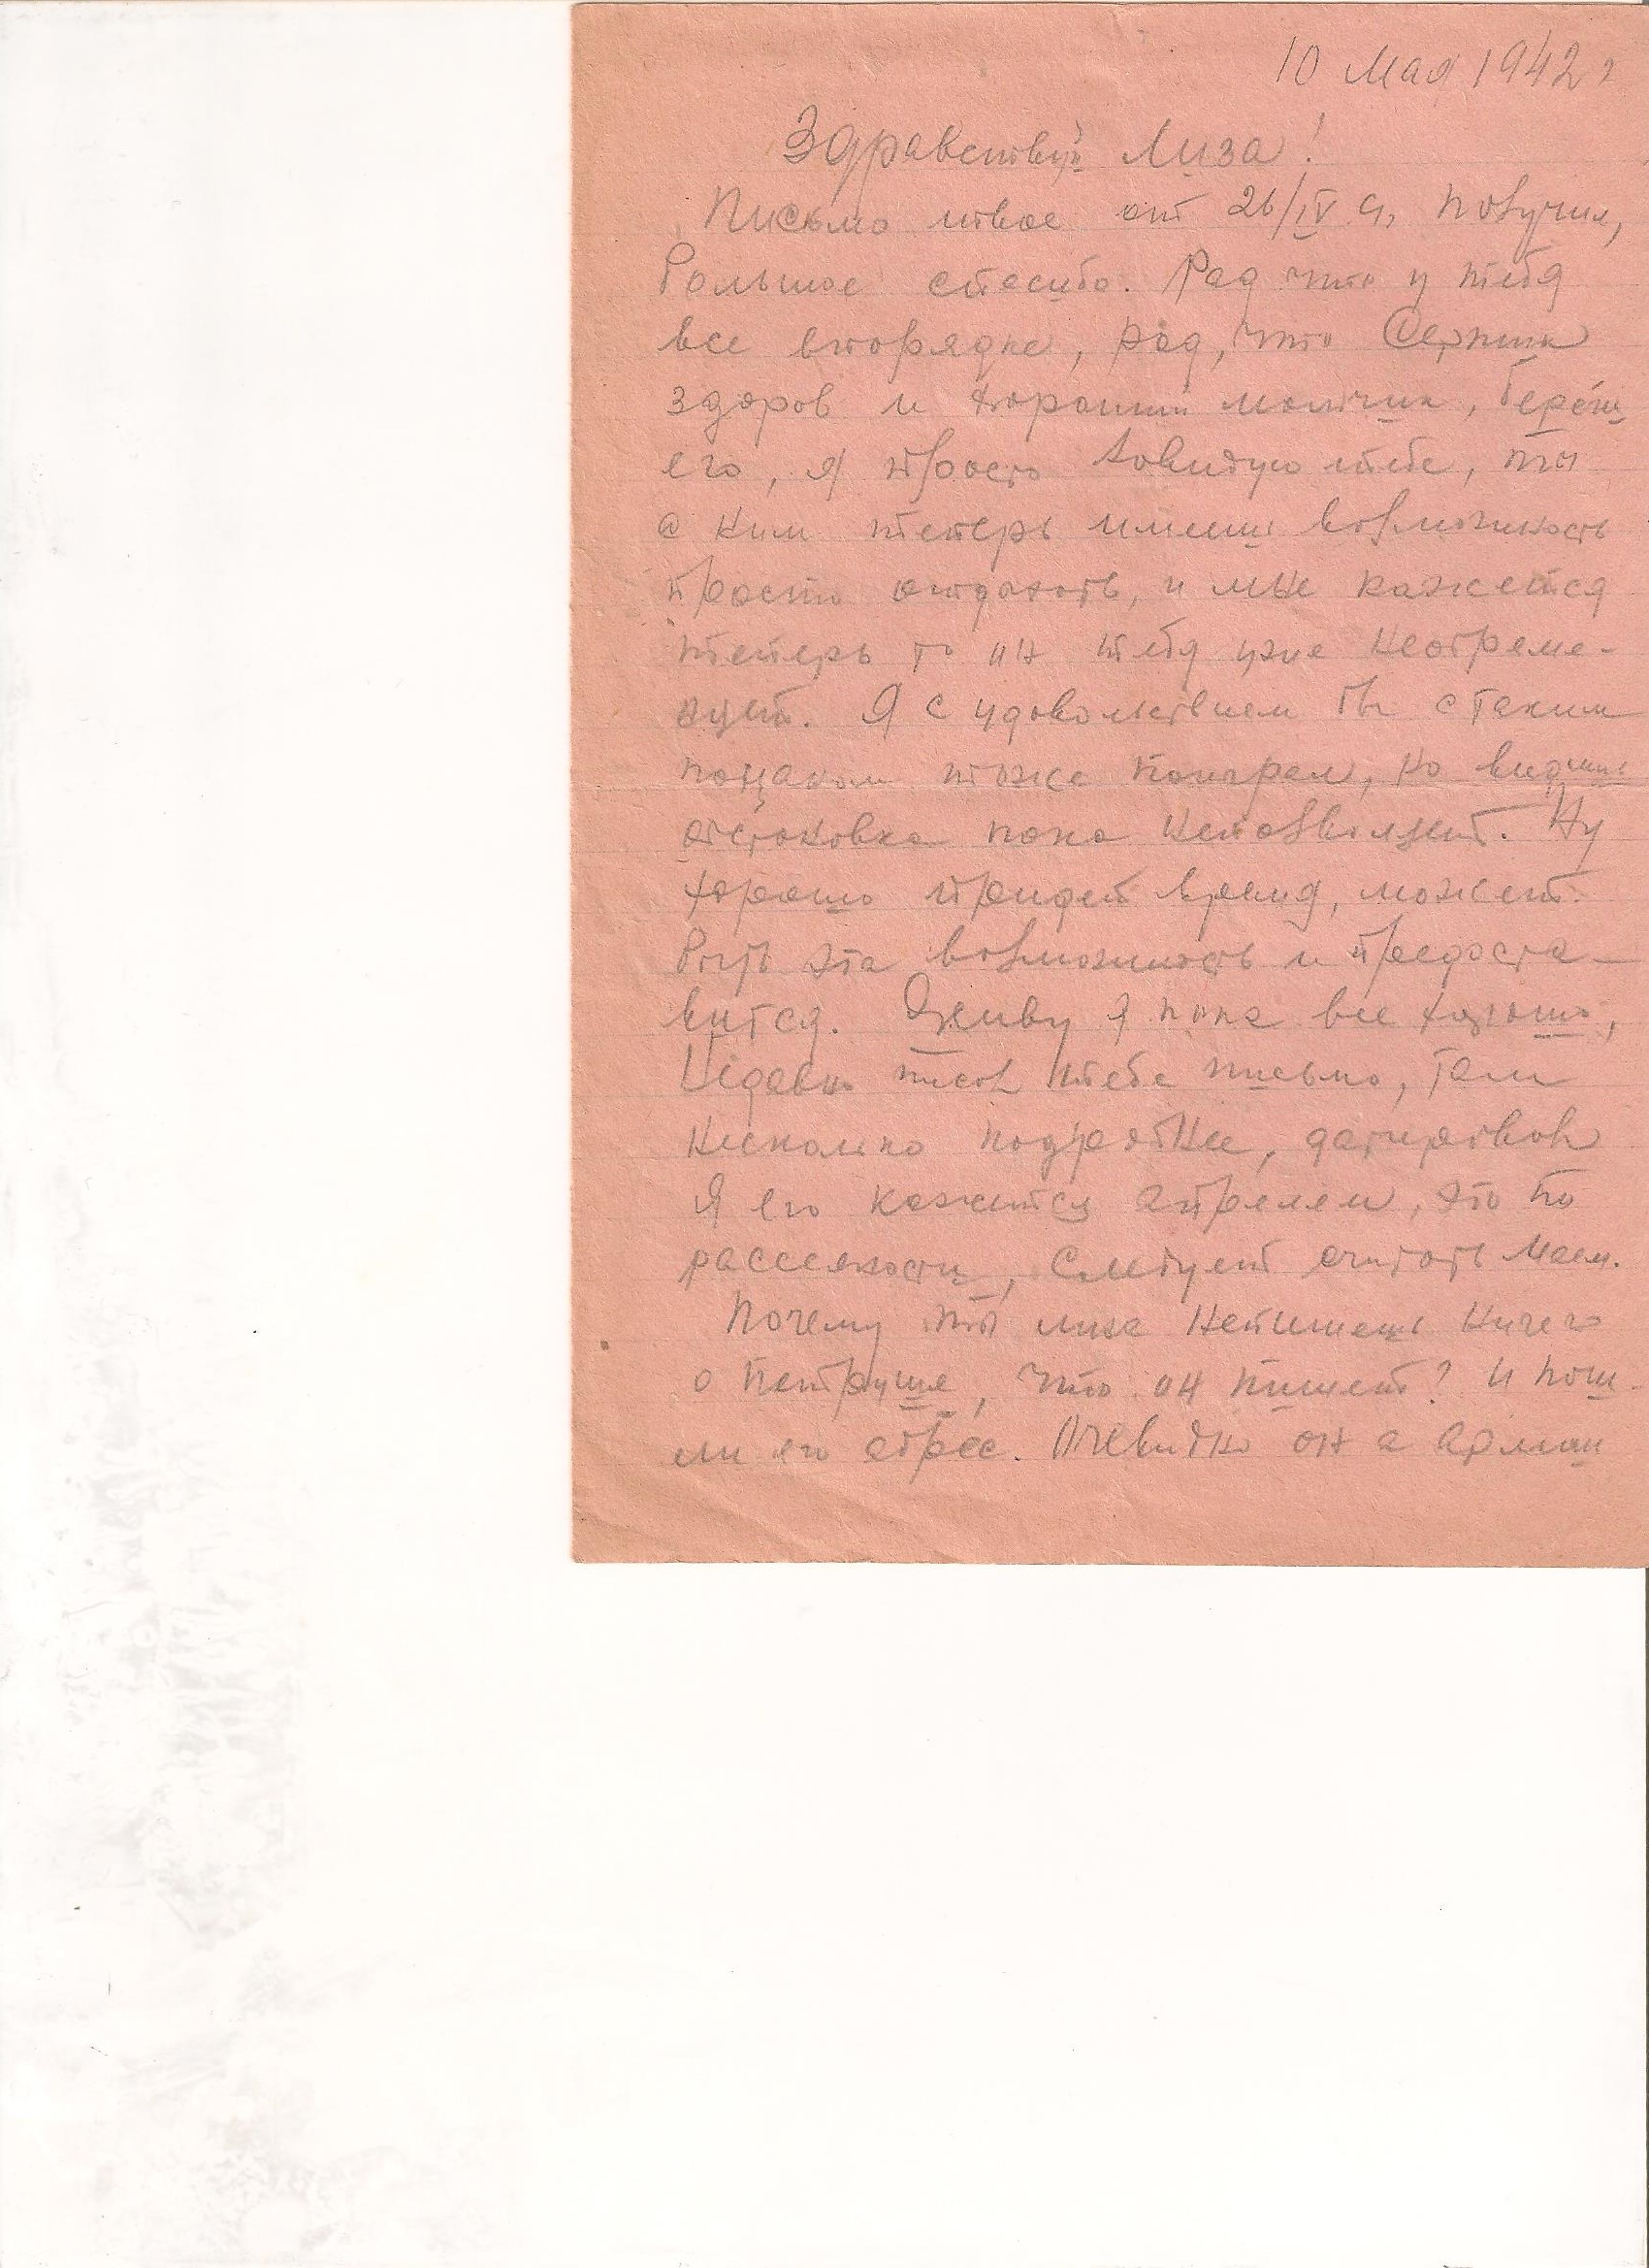 10 Мая 1942 г
Здравствуй Лиза!
Письмо твое от 26/IV с, получил,
большое спасибо. Рад что у тебя
все впорядке, рад, что Сержик
здоров и хороший мальчик, береги
его, я просто завидую тебе, ты
с ним теперь имеешь возможность
просто отдыхать, и мне кажется
теперь то он тебя уже необреме-
няет. Я с удовольствием бы с таким
пацаном тоже поиграл, но видишь
обстановка пока непозволяет. Ну
хорошо придет время, может
быть эта возможность и предоста-
вится. Живу я пока все хорошо,
Недавно писал тебе письмо, там
несколько подробнее, датировал
я его кажется апрелем, это по
рассеяности, следует считать маем.
Почему ты Лиза непишешь ничего
о Петруше, что он пишет? и пош-
ли его адрес. Очевидно он в армии